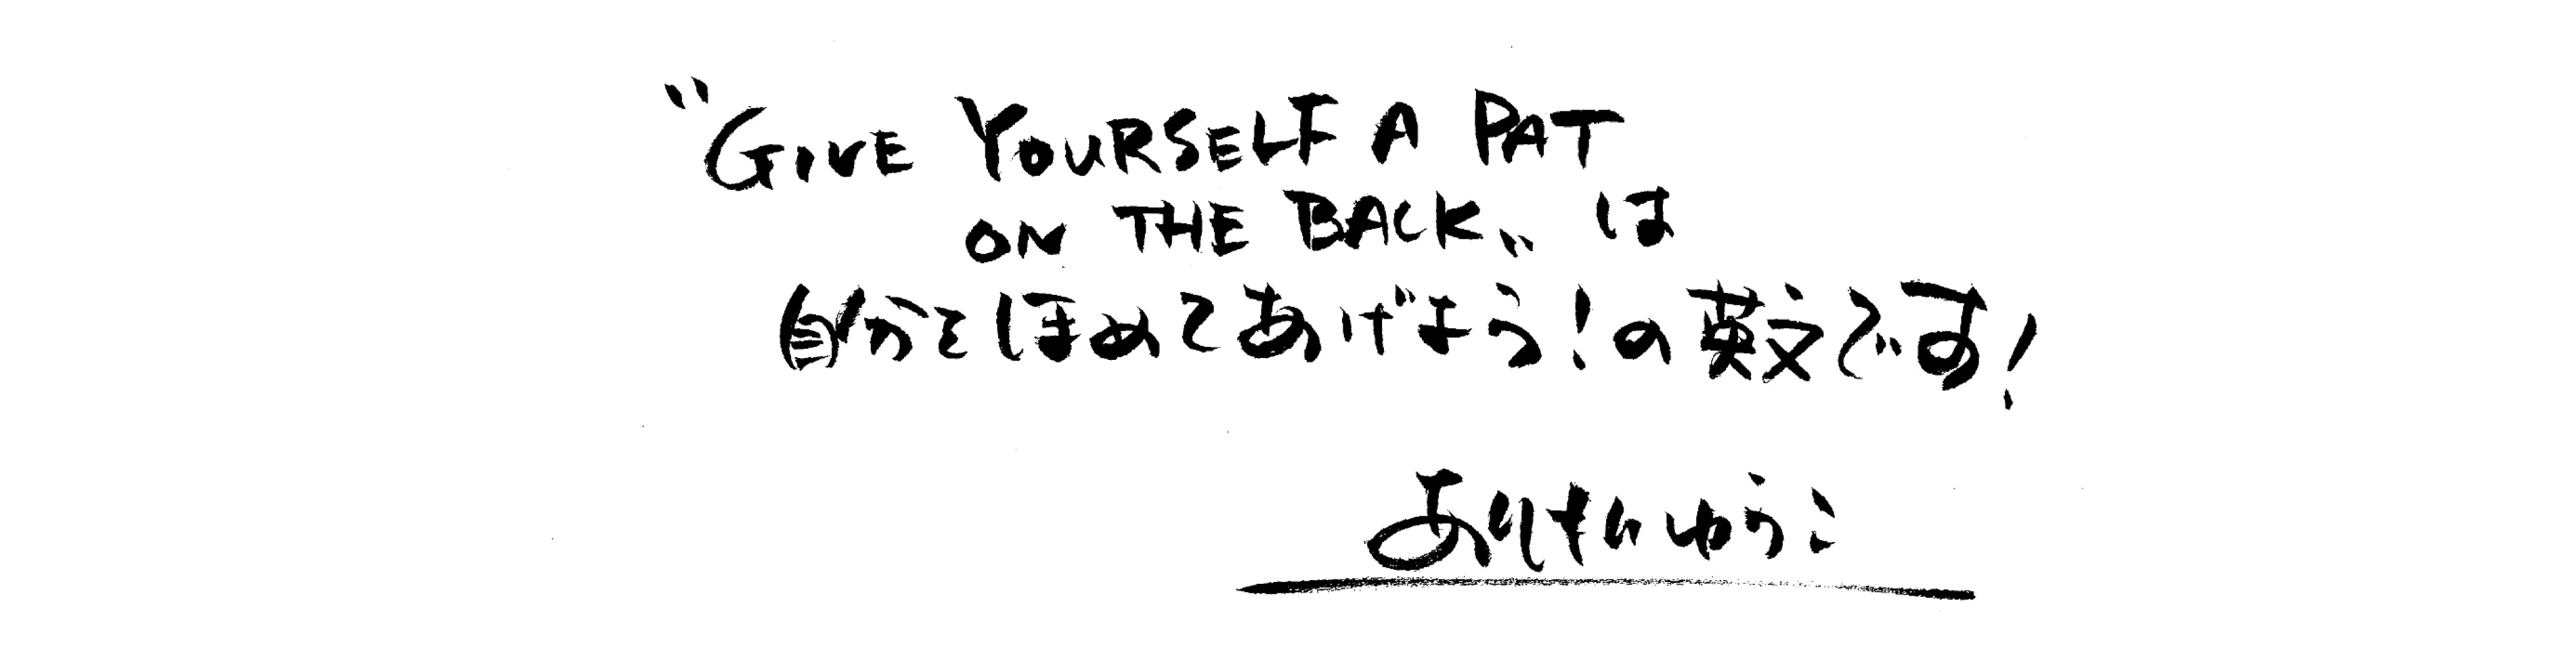 "GIVE YOURSELF A PAT
ON THE BACK〟は
自分をほめてあげよう！の英文です！
ありさんゆうこ